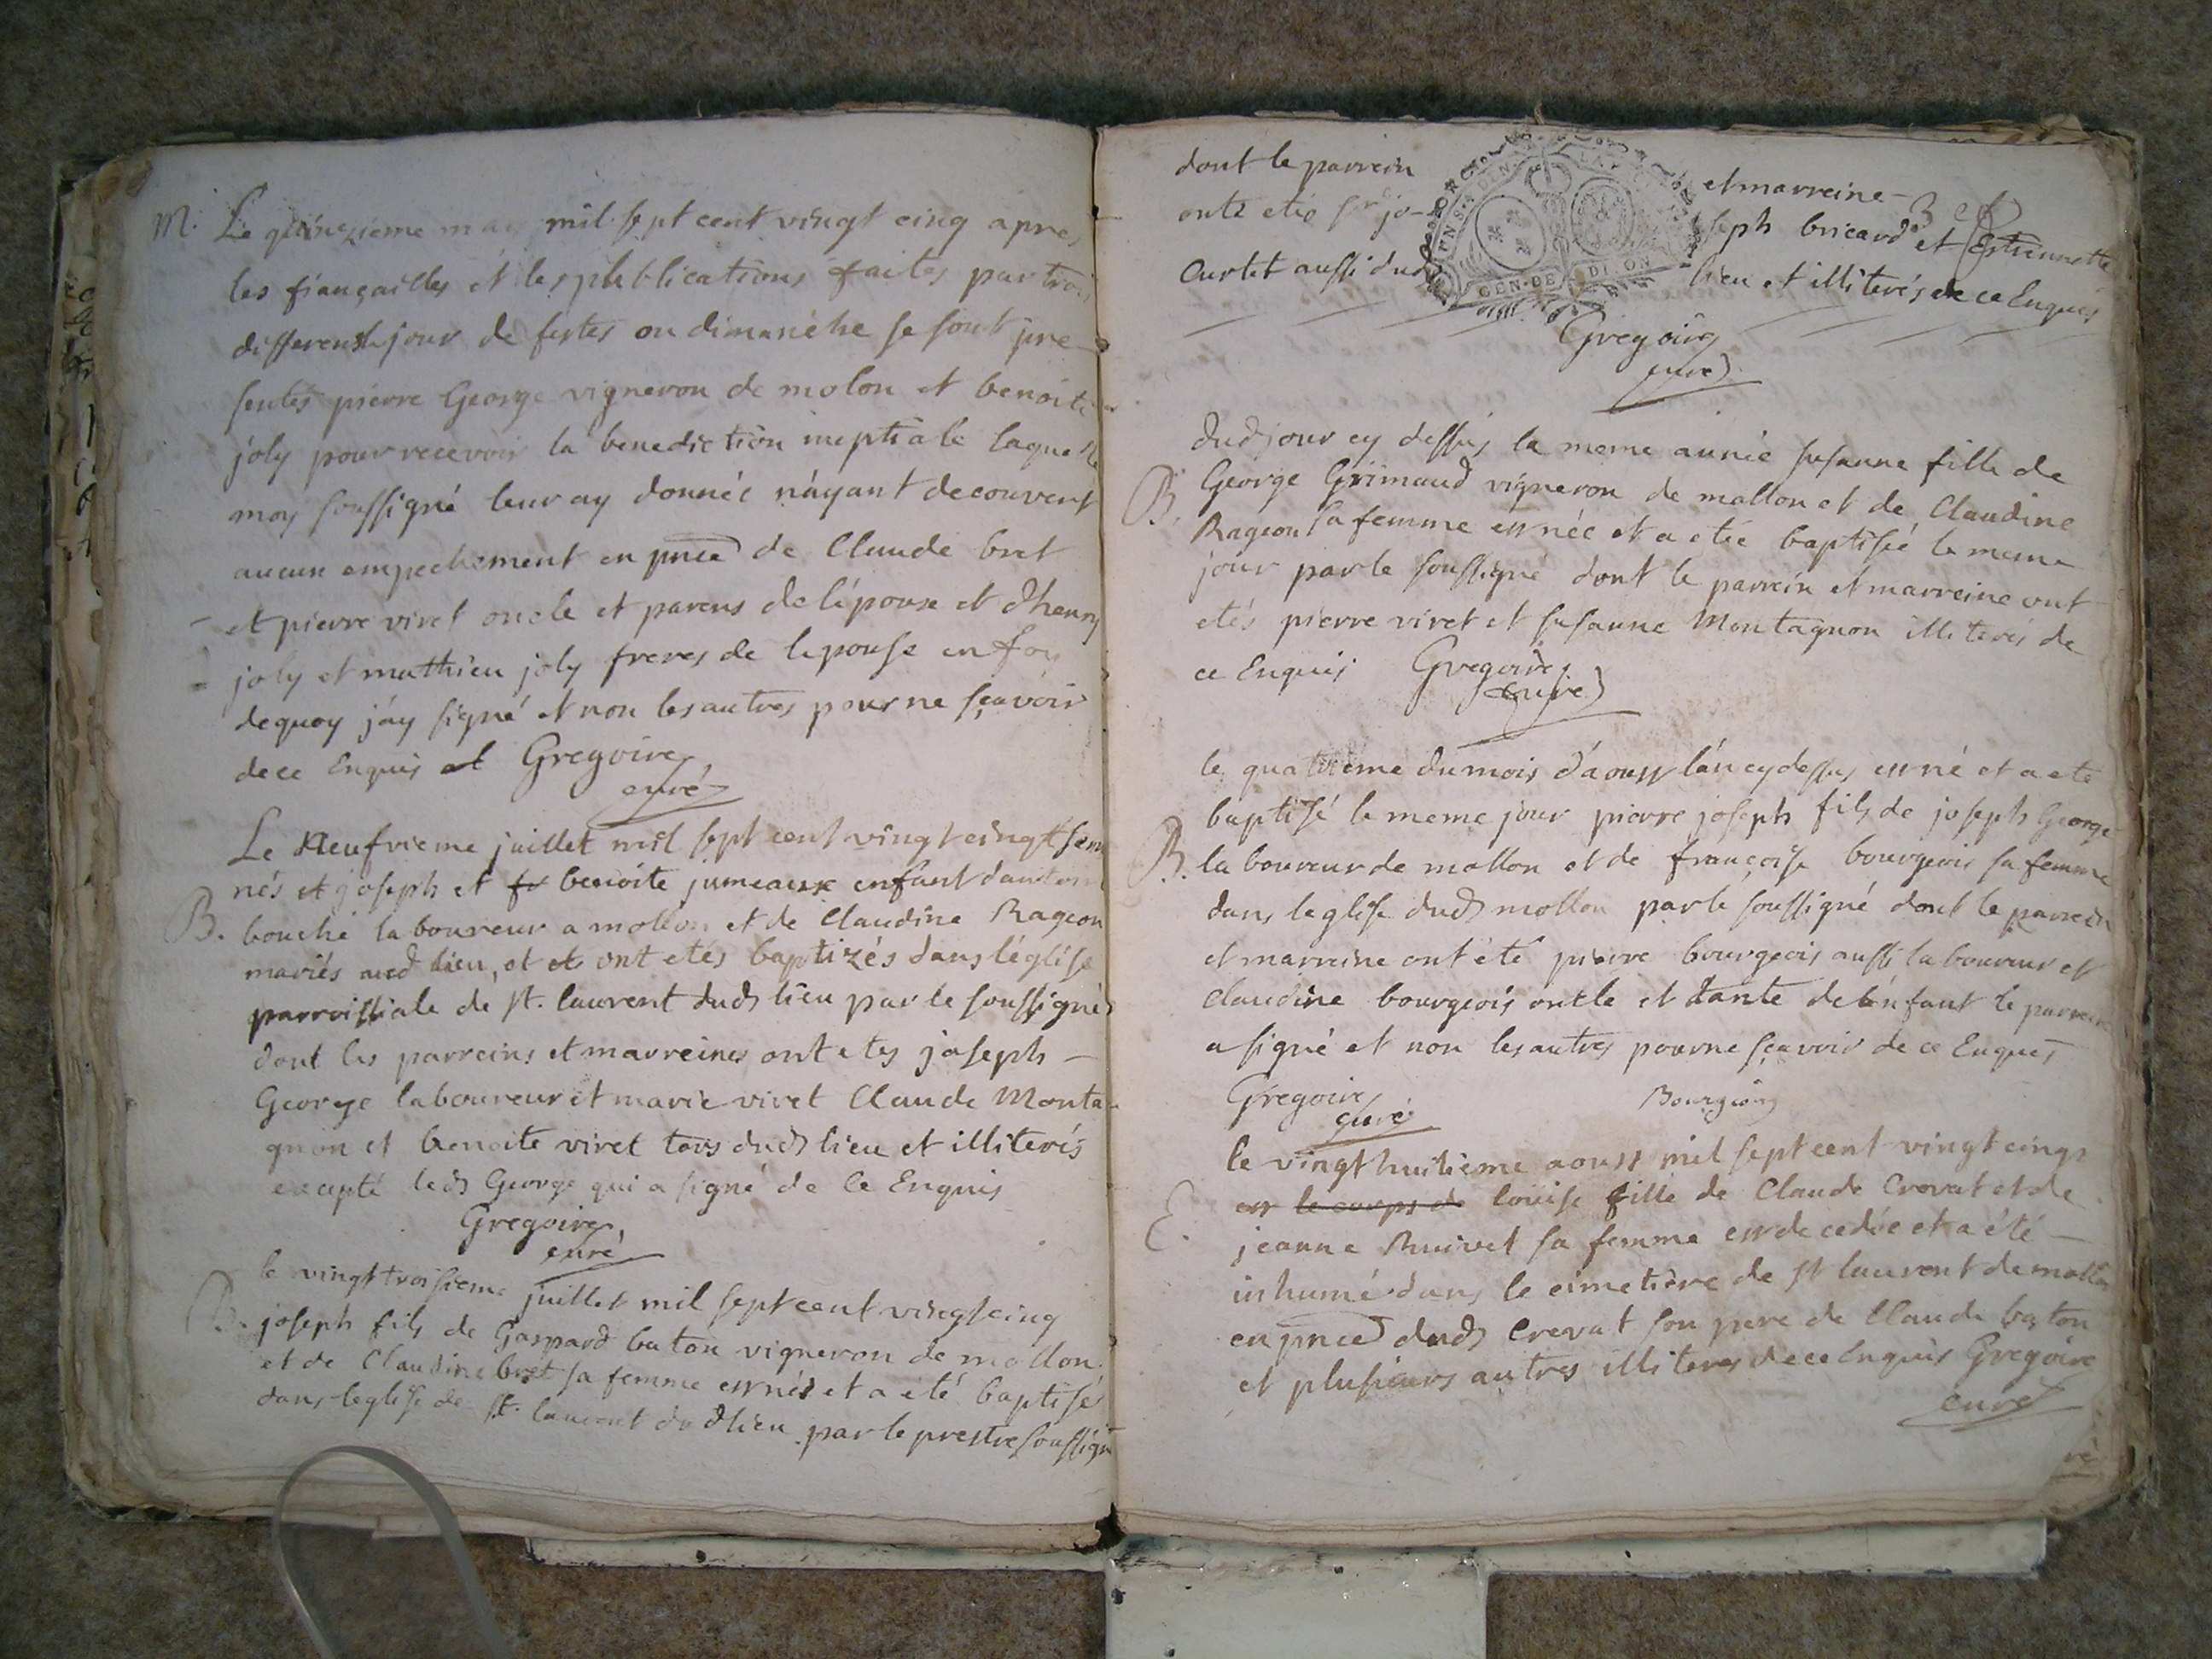 M. Le quinzieme may mil sept cent vingt cinq apres
les fiançailles et les publications faites par trois
differents jour de festes ou dimanche se sont pre
sentés pierre George vigneron de molon et benoite
joly pour recevoir la benediction nuptiale laquelle
moy soussigné leur ay donnée n'ayant decouvert
aucun empechement en pnce de Claude bret
et pierre viret oncle et parens de l'epoux et d'henry
joly et mathieu joly freres de l'epouse en foy
dequoy j'ay signé et non les autres pour ne sçavoir
de ce Enquis et Gregoire
curé
Le Neufvieme juillet mil sept cent vingt cinqt sont
nés et joseph et benoite jumeaux enfant d'antoine
B. bouché laboureur a mollon et de Claudine Rageon
mariés aud lieu, et ont etés baptizés dans l'église
parroissiale de st. laurent dud lieu par le soussigné
dont les parreins et marreines ont etes joseph -
George laboureur et marie viret Claude Monta-
gnon et benoite viret tous dud lieu et illiterés
excepté led George qui a signé de ce Enquis
Gregoire
curé
le vingt troisieme juillet mil sept cent vingt cinq
B. joseph fils de Gaspard baton vigneron de mollon
et de Claudine bret sa femme est nés et a eté baptisé
dans leglise de st. laurent dud lieu par le prestre soussigné
dont le parrein et marreine -
onts etés sr jo- seph bricard et Estiennette
Curtet aussi dud lieu et illiterés de ce Enquis
GEN · DE DIJON
Gregoire
curé
dud jour cy dessus la meme année susanne fille de
B. George Grimaud vigneron de mollon et de Claudine
Rageon sa femme est née et a etée baptisée le meme
jour par le soussigné dont le parrein et marreine ont
etés pierre viret et susanne Montagnon illiterés de
ce Enquis Gregoire
curé
le quatrieme du mois d'aoust l'an cy dessus est né et a ete
baptisé le meme jour pierre joseph fils de joseph George
B. laboureur de mollon et de françoise bourgeois sa femme
dans leglise dud mollon par le soussigné dont le parrein
et marreine ont été pierre bourgeois aussi laboureur et
claudine bourgeois oncle et tante de l'enfant le parrein
a signé et non les autres pour ne sçavoir de ce Enquis
Gregoire Bourgeois
curé
le vingt huitieme aoust mil sept cent vingt cinq
est le corps de louise fille de Claude Crovat et de
E. jeanne Ruivet sa femme est decedée et a été -
inhumé dans le cimetière de st laurent de mollon
en pnce dud Crevat son pere de Claude baton
et plusieurs autres illiterés de ce Enquis Gregoire
curé